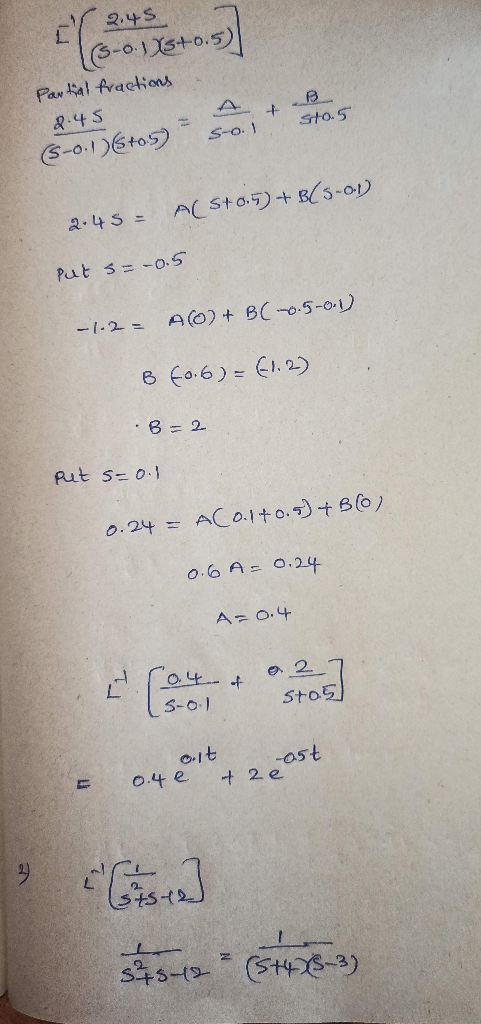 L⁻¹[2.4s/(s-0.1)(s+0.5)]
Partial fractions
2.4s/(s-0.1)(s+0.5) = A/s-0.1 + B/s+0.5
2.4s = A(s+0.5) + B(s-0.1)
Put s = -0.5
-1.2 = A(0) + B(-0.5-0.1)
B(-0.6) = (-1.2)
B = 2
Put s = 0.1
0.24 = A(0.1+0.5) + B(0)
0.6 A = 0.24
A = 0.4
L⁻¹[0.4/s-0.1 + 2/s+0.5]
= 0.4 e^0.1t + 2 e^-0.5t
2) L⁻¹[1/s²+s-12]
1/s²+s-12 = 1/(s+4)(s-3)